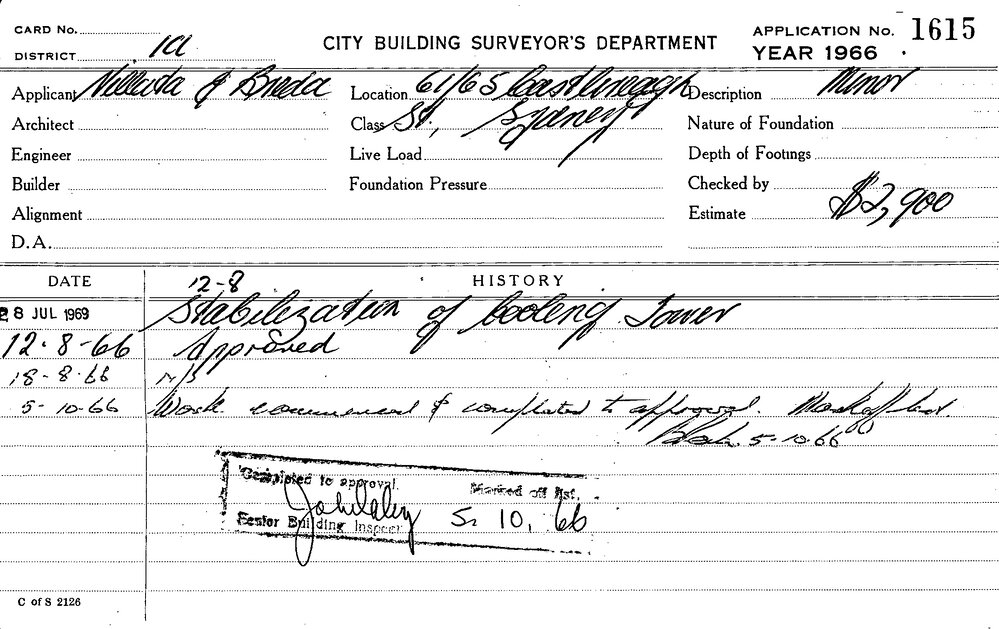 CARD No.
DISTRICT 1a
CITY BUILDING SURVEYOR'S DEPARTMENT
APPLICATION No. 1615
YEAR 1966
Applicant & Breda
Location 61/65 Castlereagh
Class St, Sydney
Description Minor
Architect
Nature of Foundation
Engineer
Live Load
Depth of Footings
Builder
Foundation Pressure
Checked by
Alignment
Estimate $2,900
D.A.
DATE
12-8
HISTORY
28 JUL 1969 Stabilization of Cooling Tower
12.8-66 Approved
18-8.66 N/S
5-10.66 Work commenced & completed to approval. Mark off list
5-10.66
Completed to approval. Marked off list.
Senior Building Inspector 5. 10. 66
C of S 2126